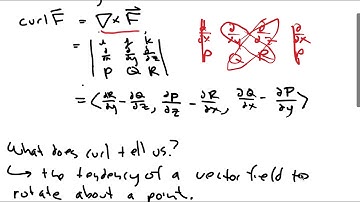 curl F⃗ = ∇ × F⃗
| i j k |
| ∂/∂x ∂/∂y ∂/∂z |
| P Q R |
∂/∂x ∂/∂y ∂/∂z ∂/∂x
P Q R P
= ⟨ ∂R/∂y - ∂Q/∂z, ∂P/∂z - ∂R/∂x, ∂Q/∂x - ∂P/∂y ⟩
What does curl tell us?
↳ the tendency of a vector field to
rotate about a point.